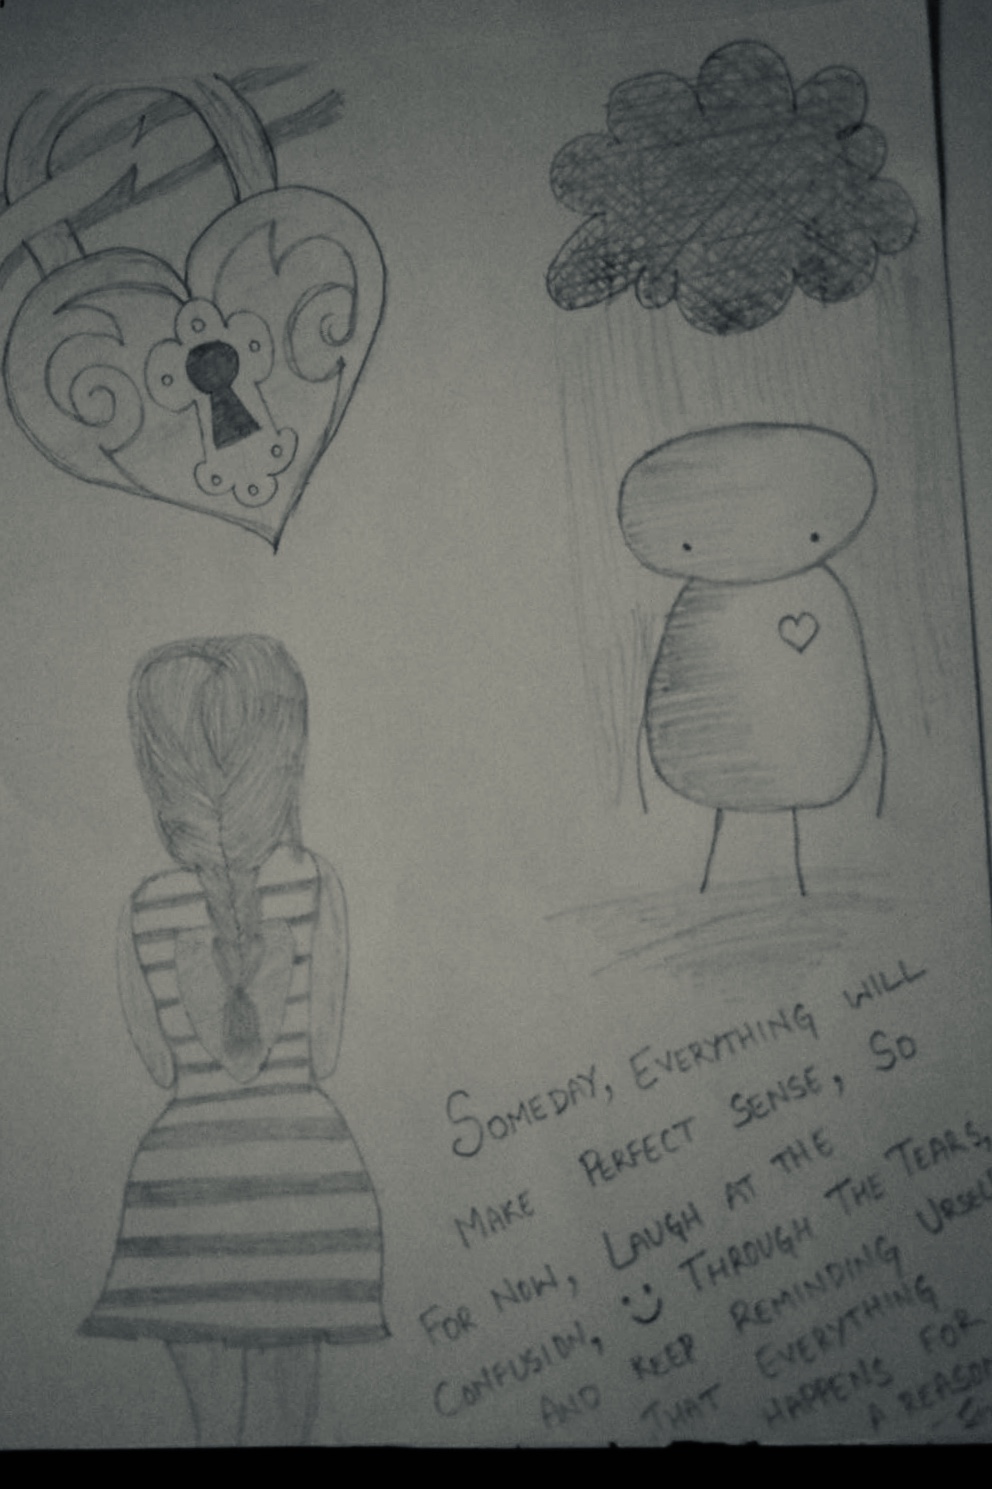 SOMEDAY, EVERYTHING WILL
MAKE PERFECT SENSE, SO
FOR NOW, LAUGH AT THE
CONFUSION, :) THROUGH THE TEARS,
AND KEEP REMINDING URSELF
THAT EVERYTHING
HAPPENS FOR
A REASON